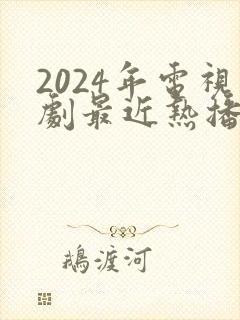 2024年電視
劇最近熱播
鵝渡河